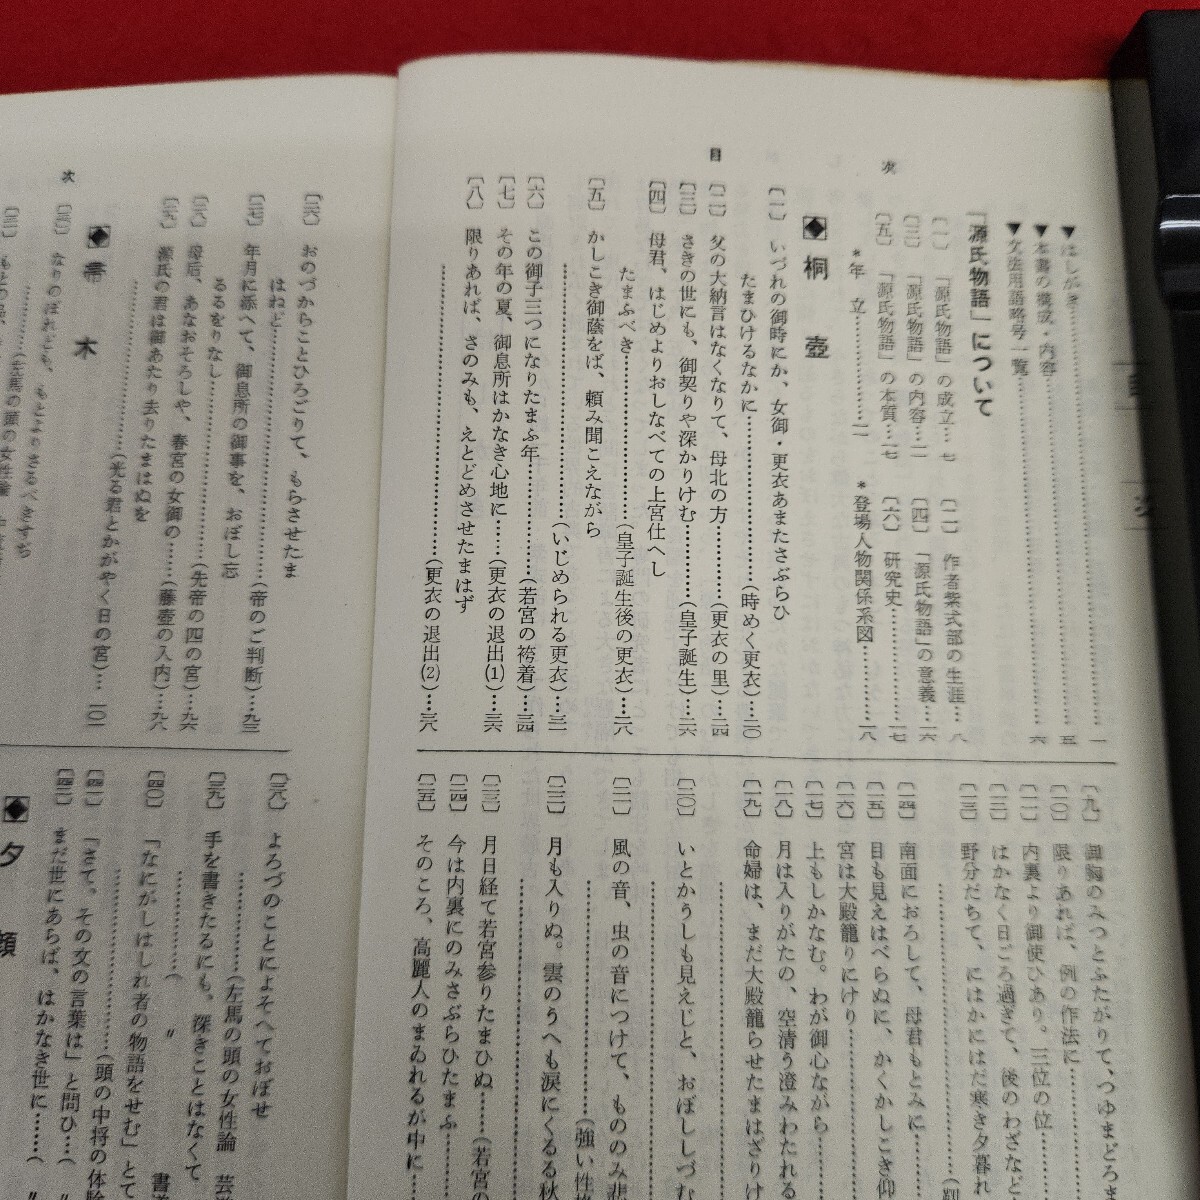 目次
▼はしがき……一
▼本書の構成・内容……五
▼文法用語略号一覧……六
「源氏物語」について
〔一〕「源氏物語」の成立…七
〔二〕作者紫式部の生涯…八
〔三〕「源氏物語」の内容…一一
〔四〕「源氏物語」の意義…一六
〔五〕「源氏物語」の本質…一七
〔六〕研究史……一七
*年立……一一
*登場人物関係系図……一八
◆桐壺
〔一〕いづれの御時にか、女御・更衣あまたさぶらひ
たまひけるなかに……(時めく更衣)…二〇
〔二〕父の大納言はなくなりて、母北の方……(更衣の里)…二四
〔三〕さきの世にも、御契りや深かりけむ……(皇子誕生)…二六
〔四〕母君、はじめよりおしなべての上宮仕へし
たまふべき……(皇子誕生後の更衣)…二八
〔五〕かしこき御蔭をば、頼み聞こえながら
……(いじめられる更衣)…三一
〔六〕この御子三つになりたまふ年……(若宮の袴着)…三四
〔七〕その年の夏、御息所はかなき心地に……(更衣の退出(1))…三六
〔八〕限りあれば、さのみも、えとどめさせたまはず
……(更衣の退出(2))…三八
〔九〕御胸のみつとふたがりて、つゆまどろま
〔一〇〕限りあれば、例の作法に……
〔一一〕内裏より御使ひあり。三位の位……
〔一二〕はかなく日ごろ過ぎて、後のわざなど
〔一三〕野分だちて、にはかにはだ寒き夕暮れ
〔一四〕南面におろして、母君もとみに……
〔一五〕目も見えはべらぬに、かくかしこき仰
〔一六〕宮は大殿籠りにけり……
〔一七〕上もしかなむ。わが御心ながら……
〔一八〕月は入りがたの、空清う澄みわたれる
〔一九〕命婦は、まだ大殿籠らせたまはざりけ
〔二〇〕いとかうしも見えじと、おぼししづむ
〔二一〕風の音、虫の音につけて、もののみ悲
……(強い性格
〔二二〕月も入りぬ。雲のうへも涙にくるる秋
〔二三〕月日経て若宮参りたまひぬ……(若宮の
〔二四〕今は内裏にのみさぶらひたまふ……
〔二五〕そのころ、高麗人のまゐれるが中に…
次
〔二六〕おのづからことひろごりて、もらさせたま
はねど……(帝のご判断)…九三
〔二七〕年月に添へて、御息所の御事を、おぼし忘
るるをりなし……(先帝の四の宮)…九六
〔二八〕母后、あなおそろしや、春宮の女御の……(藤壺の入内)…九八
〔二九〕源氏の君は御あたり去りたまはぬを
……(光る君とかがやく日の宮)…一〇一
◆帚木
〔三〇〕なりのぼれども、もとよりさるべきすぢ
……(左馬の頭の女性論
〔三八〕よろづのことによそへておぼせ
……(左馬の頭の女性論 芸
〔三九〕手を書きたるにも、深きことはなくて
……(〃 書道
〔四〇〕「なにがしはしれ者の物語をせむ」とて
……(頭の中将の体験
〔四一〕「さて、その文の言葉は」と問ひ……(〃
〔四二〕まだ世にあらば、はかなき世に……(
◆夕顔